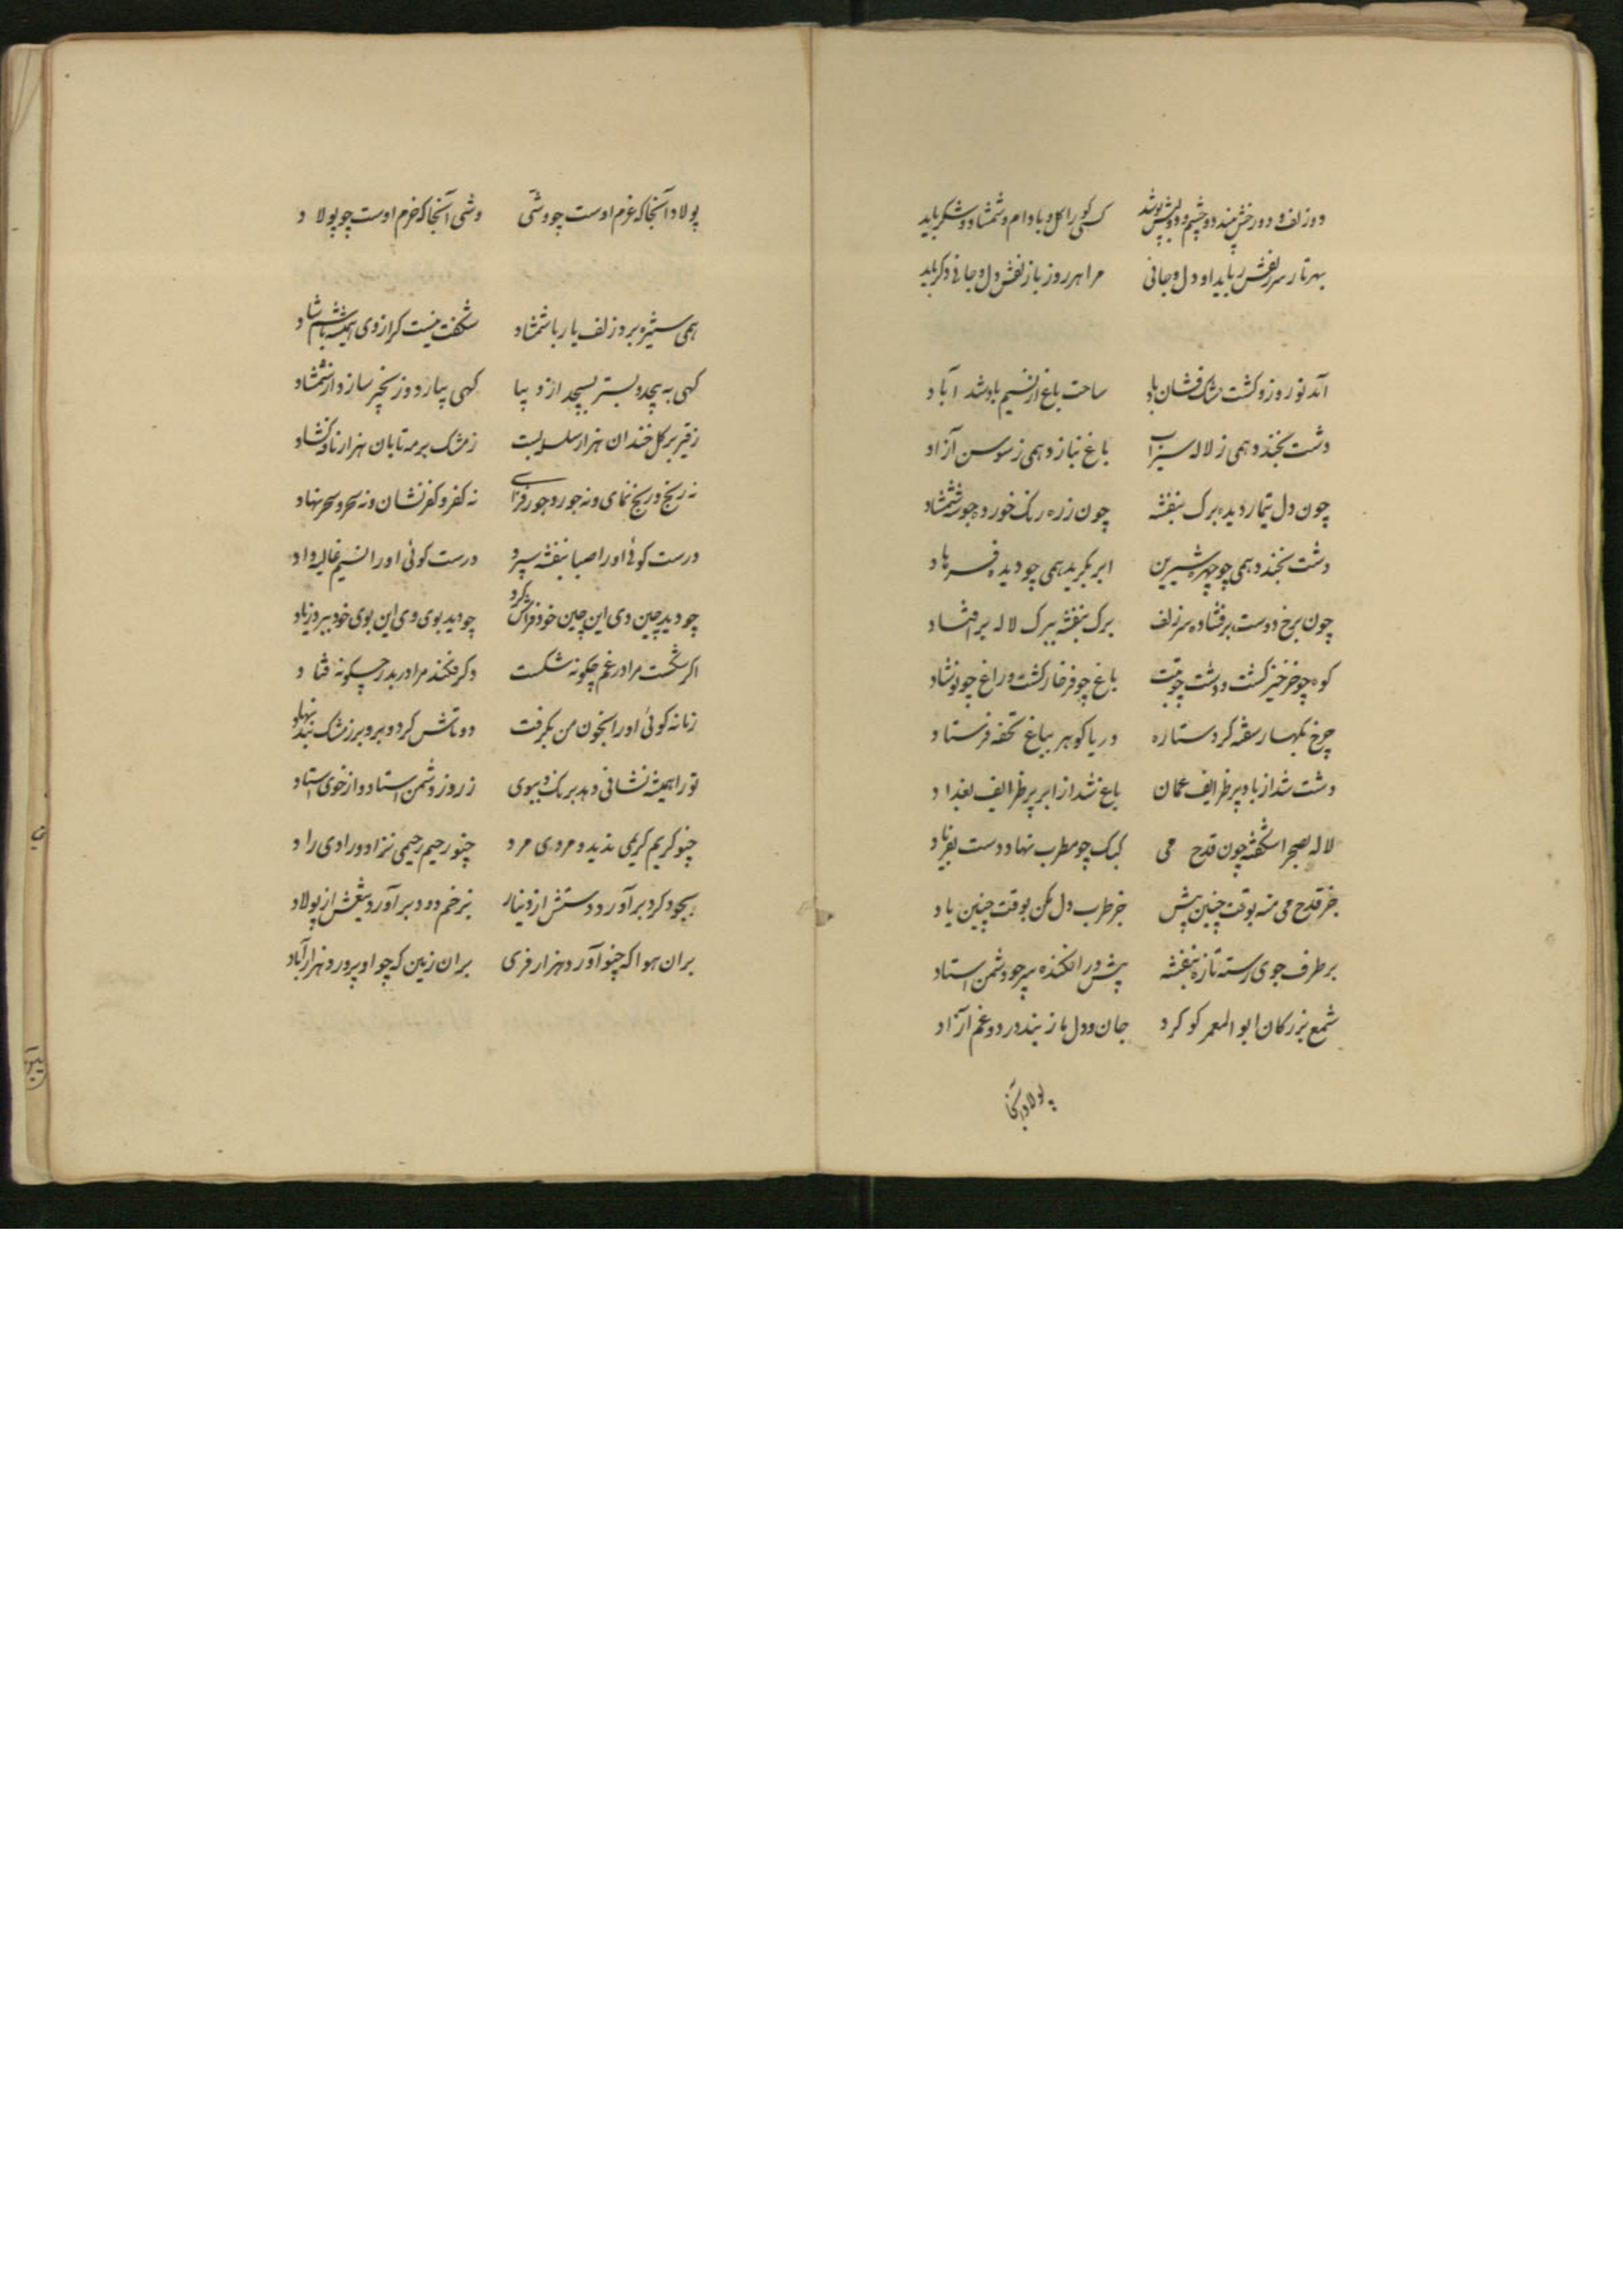 دو زلف و دو رخش بیند دو چشم و دو لبش بوسد کسی کورا گل و بادام و شمشاد و شکر باید
بهر تار سر زلفش رباید او دل و جانی مرا هر روز باز لفش دل و جانی دکر باید
آمد نوروز و کشت مشک فشان باد ساحت باغ از نسیم باد شد آباد
دشت بخندد همی ز لاله سیراب باغ بنازد همی ز سوسن آزاد
چون دل تیمار دیده برک بنفشه چون زره رنک خورده جوشن شمشاد
دشت بخندد همی چو چهره شیرین ابر بکرید همی چو دیده فرهاد
چون برخ دوست برفتاده سر زلف برک بنفشه ببرک لاله برافتاد
کوه چو خرخیز کشت و دشت چو تبت باغ چو فرخار کشت و راغ چو نوشاد
چرخ بکهسار سفته کرد ستاره دریا کوهر بباغ تحفه فرستاد
دشت شد از باد پر ظرایف عمان باغ شد از ابر پر ظرایف بغداد
لاله بصحرا شکفته چون قدح می کبک چو مطرب نهاد دست بفریاد
جز قدح می منه بوقت چنین پیش جز طرب دل مکن بوقت چنین یاد
بر طرف جوی رسته تازه بنفشه پیش در افکنده سر چو دشمن استاد
شمع بزرکان ابو المعمر کو کرد جان و دل ما ز بند درد و غم آزاد
پولاد آنجا
پولاد آنجا که عزم اوست چو وشی وشی آنجا که خرم اوست چو پولاد
همی ستیزه برد زلف یار با شمشاد شکفت نیست کر از وی همیشه باشم شاد
کهی به پیچد و بستر بسیجد از دیبا کهی بیازد و زنجیر سازد از شمشاد
ز قیر بر کل خندان هزار سلسله بست ز مشک بر مه تابان هزار نافه کشاد
نه رنج و رنج نمای و نه جور و جور فزای نه کفر و کفر نشان و نه سحر و سحر نهاد
درست کوئی او را صبا بنفشه سپرد درست کوئی او را نسیم غالیه داد
چو دید چین وی این چین خود فرامش کرد چو دید بوی وی این بوی خود ببرد ز یاد
اکر شکست مرا در غم چکونه شکست و کر فکند مرا در بدر چکونه فتاد
زمانه کوئی او را بخون من بکرفت دو تاش کرد و برو بر ز مشک بند نهاد
تو را همیشه نشانی دهد برنک و ببوی ز روز دشمن استاد و از خوی استاد
چنو کریم کریمی ندید و مردی مرد چنو رحیم رحیمی نزاد و رادی راد
بجود کرد بر آورد دستش از دینار بزخم دود بر آورد تیغش از پولاد
بران هوا که چنو آورد هزار فری بران زمین که چو او پرورد هزار آباد